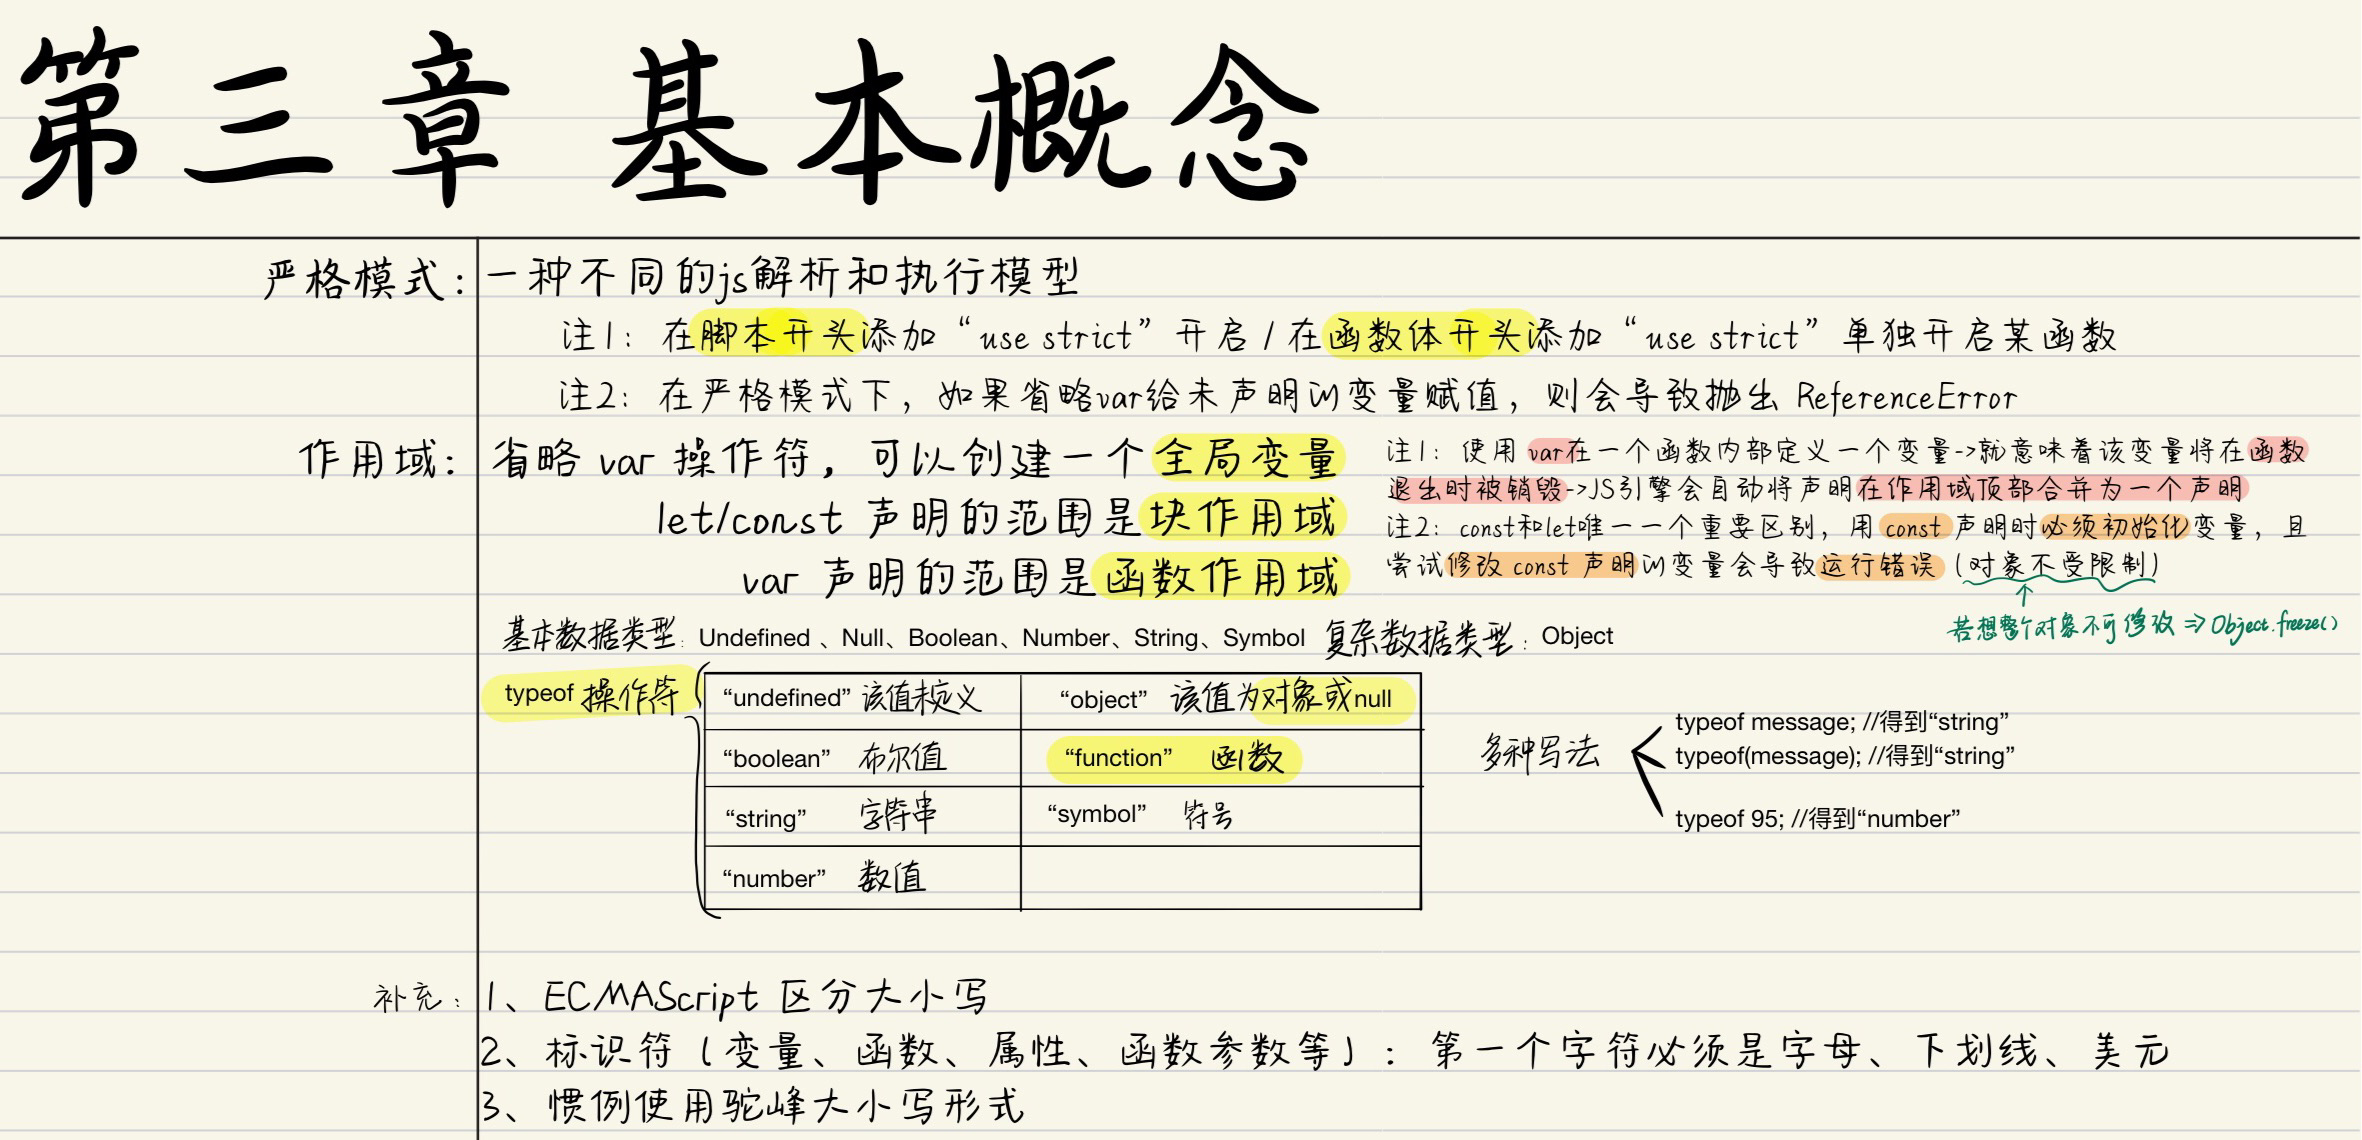 第三章 基本概念
严格模式：一种不同的js解析和执行模型
注1：在脚本开头添加“use strict”开启 / 在函数体开头添加“use strict”单独开启某函数
注2：在严格模式下，如果省略var给未声明的变量赋值，则会导致抛出 ReferenceError
作用域：省略 var 操作符，可以创建一个全局变量
let/const 声明的范围是块作用域
var 声明的范围是函数作用域
注1：使用 var在一个函数内部定义一个变量->就意味着该变量将在函数
退出时被销毁->JS引擎会自动将声明在作用域顶部合并为一个声明
注2：const和let唯一一个重要区别，用 const 声明时必须初始化变量，且
尝试修改 const 声明的变量会导致运行错误（对象不受限制）
若想整个对象不可修改 => Object.freeze()
基本数据类型：Undefined 、Null、Boolean、Number、String、Symbol 复杂数据类型：Object
typeof 操作符
“undefined” 该值未定义 “object” 该值为对象或null
“boolean” 布尔值 “function” 函数
“string” 字符串 “symbol” 符号
“number” 数值
多种写法
typeof message; //得到“string”
typeof(message); //得到“string”
typeof 95; //得到“number”
补充：1、ECMAScript 区分大小写
2、标识符（变量、函数、属性、函数参数等）：第一个字符必须是字母、下划线、美元
3、惯例使用驼峰大小写形式